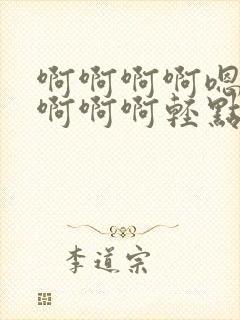 啊啊啊啊嗯
啊啊啊輕點
李道宗